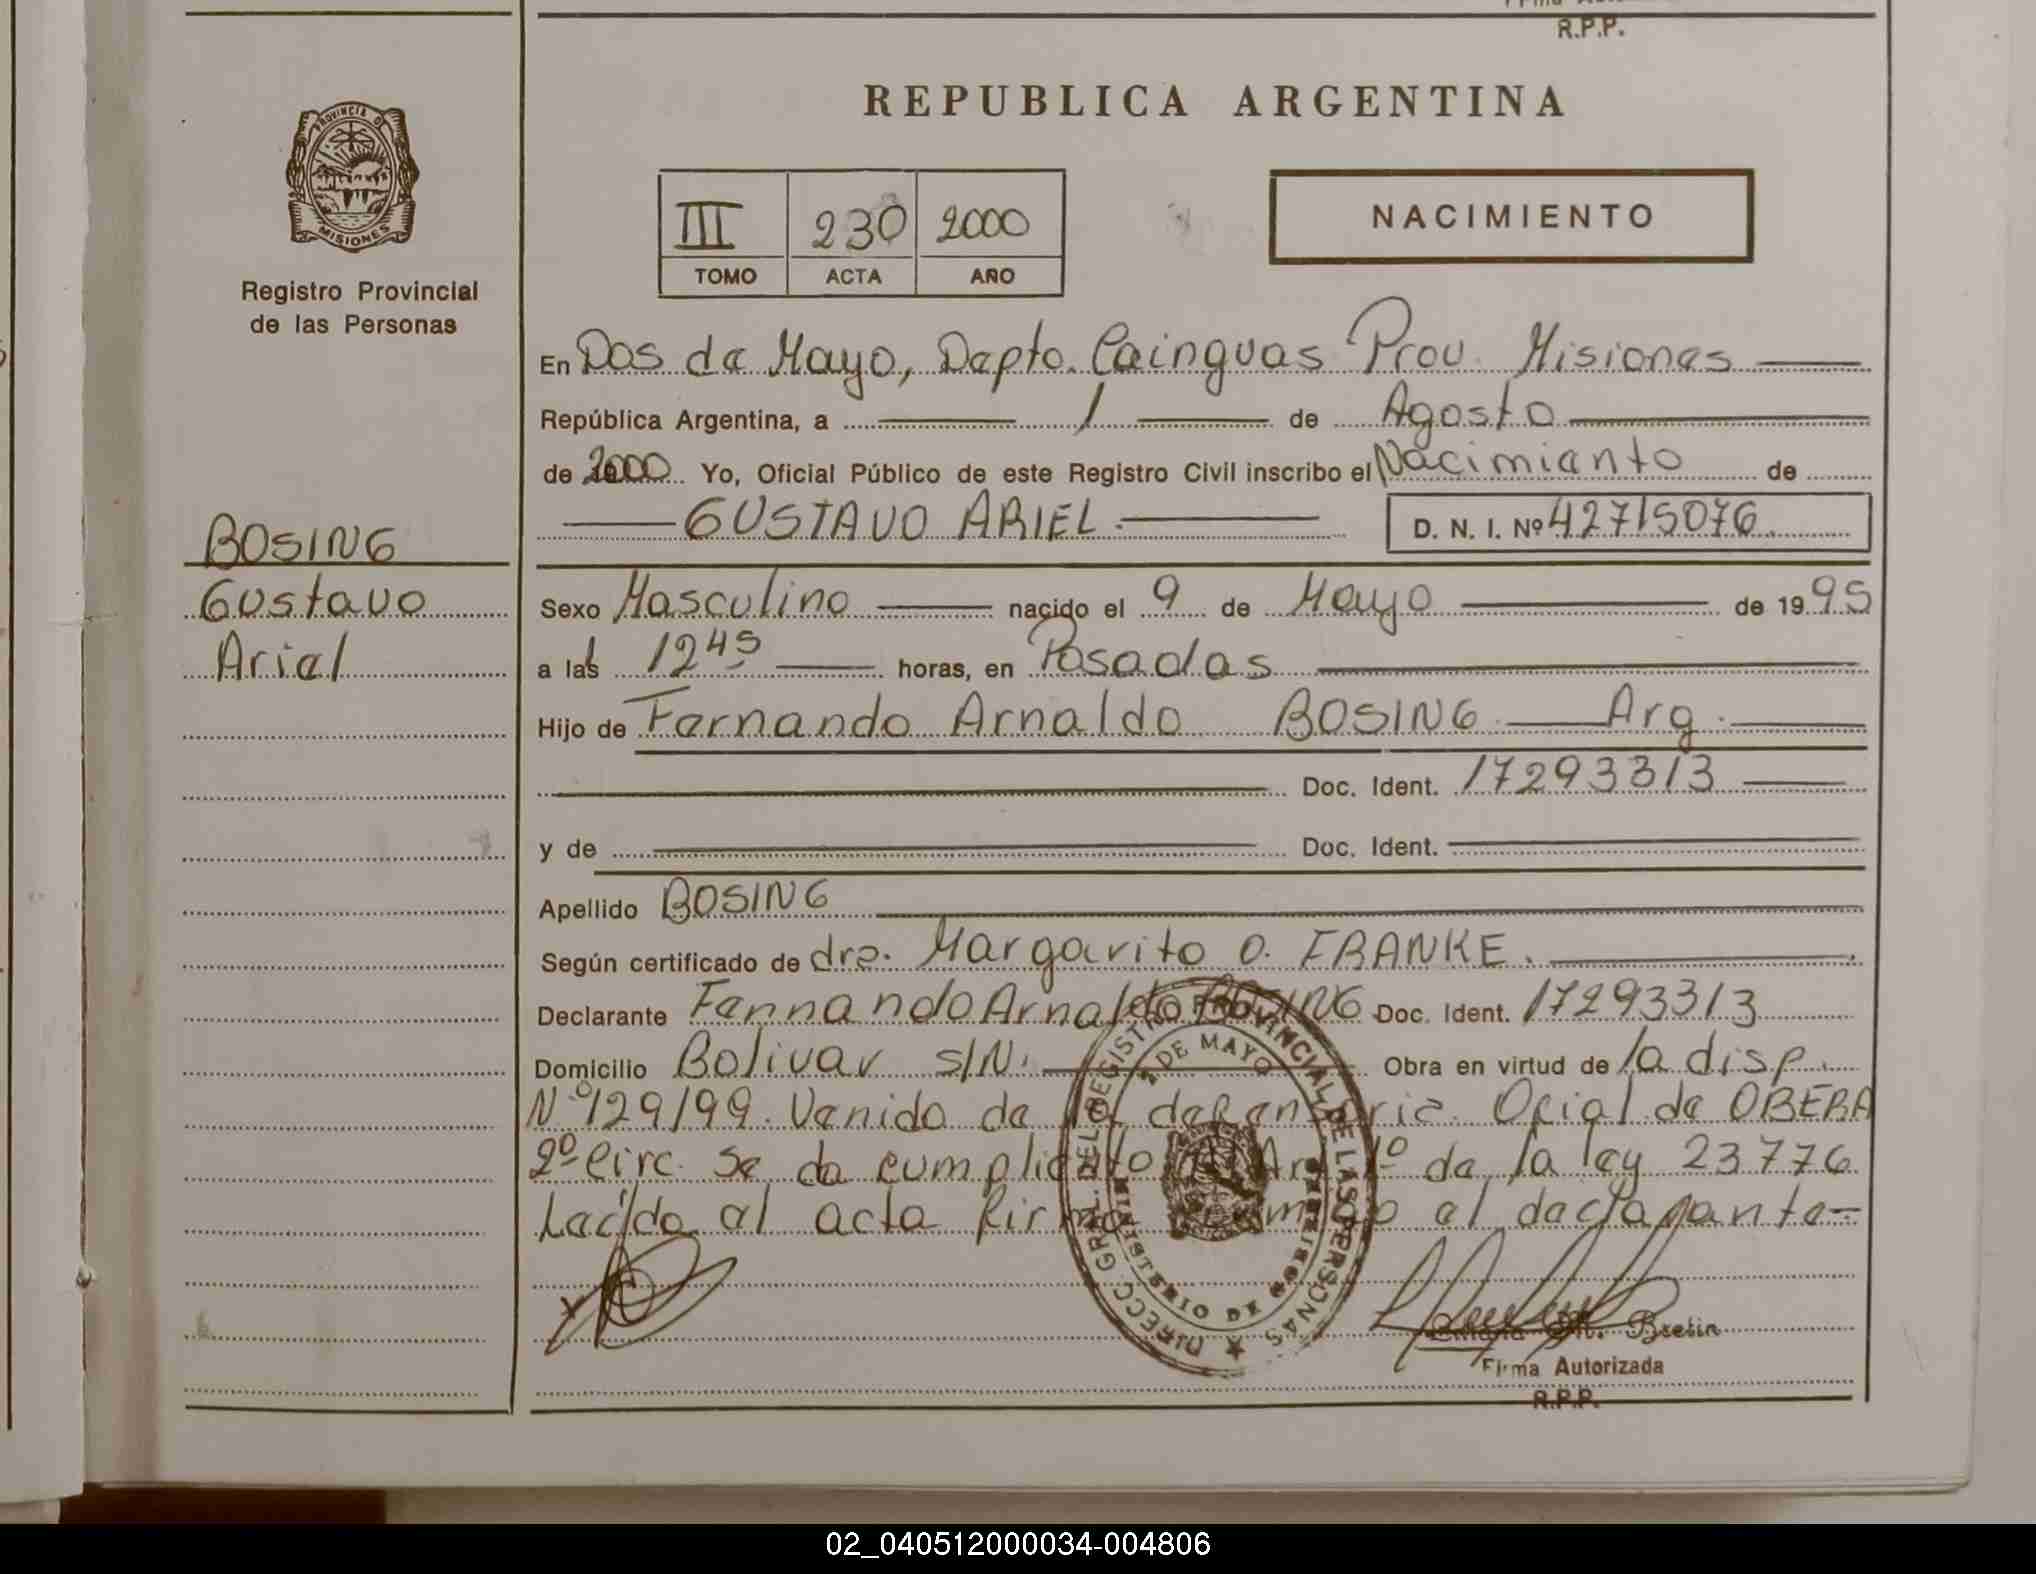 R.P.P.
REPUBLICA ARGENTINA
PROVINCIA D MISIONES
Registro Provincial
de las Personas
III 230 2000
TOMO ACTA AÑO
NACIMIENTO
En Dos de Mayo, Depto. Cainguas Prov. Misiones
República Argentina, a 1 de Agosto
de 2000 Yo, Oficial Público de este Registro Civil inscribo el Nacimiento de
GUSTAVO ARIEL. D. N. I. Nº 42715076
BOSING
Gustavo
Ariel
Sexo Masculino nacido el 9 de Mayo de 1995
a las 12 45 horas, en Posadas
Hijo de Fernando Arnaldo BOSING Arg.
Doc. Ident. 17293313
y de Doc. Ident.
Apellido BOSING
Según certificado de dra. Margarita O. FRANKE.
Declarante Fernnando Arnaldo BOSING Doc. Ident. 17293313
Domicilio Bolivar S/N. Obra en virtud de la disp.
Nº 129/99. Venido de def. Ofial. de OBERA
2º Circ. Se da cumplic Art 1º de la ley 23776
Leida al acta firma el declarante-
DIRECC GRAL. DEL REGISTRO PROVINCIAL DE LAS PERSONAS
2 DE MAYO
MINISTERIO DE GOBIERNO
M. Bretin
Firma Autorizada
R.P.P.
02_040512000034-004806